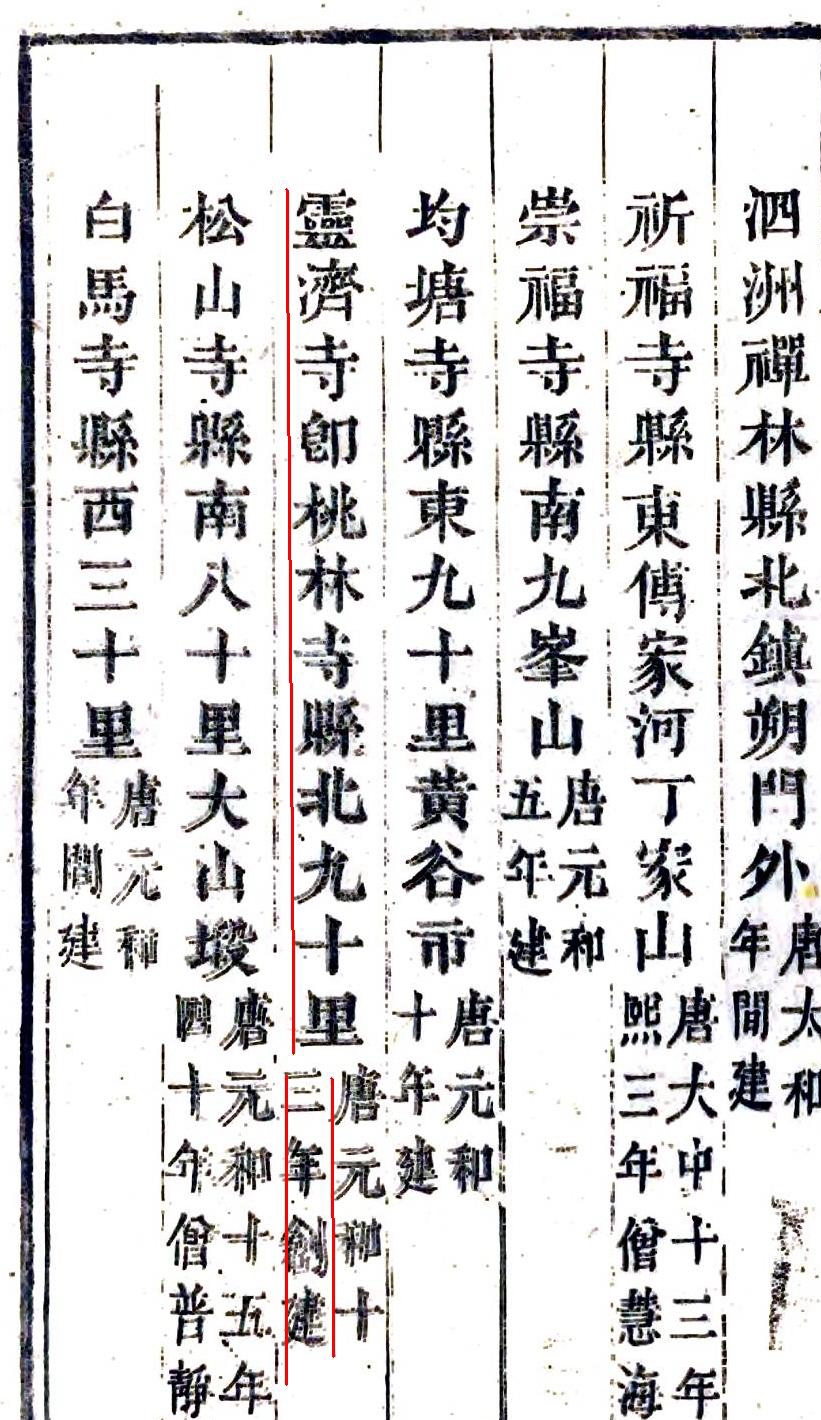 泗洲禪林縣北鎮朔門外
唐太和
年間建
祈福寺縣東傅家河丁家山
唐大中十三年
熙三年僧慧海
崇福寺縣南九峯山
唐元和
五年建
均塘寺縣東九十里黃谷市
唐元和
十年建
靈濟寺卽桃林寺縣北九十里
唐元和十
三年創建
松山寺縣南八十里大山塅
唐元和十五年
四十年僧普靜
白馬寺縣西三十里
唐元和
年間建